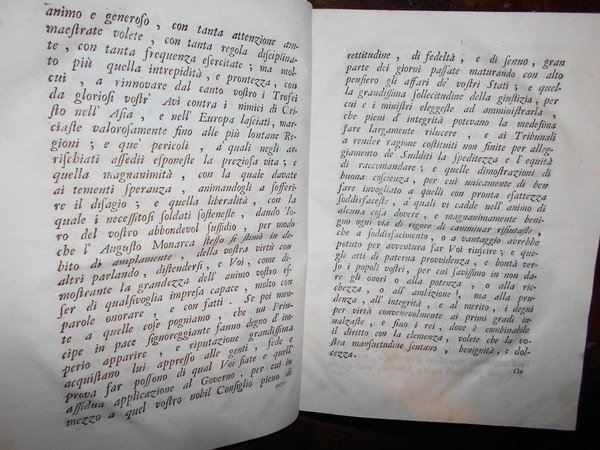 animo e generoso, con tanta attenzione am-
maestrate volete, con tanta regola disciplina-
te, con tanta frequenza esercitate; ma mol-
to più quella intrepidità, e prontezza, con
cui, a rinnovare dal canto vostro i Trofei
da gloriosi vostr' Avi contra i nimici di Cri-
sto nell' Asia, e nell' Europa lasciati, mar-
ciaste valorosamente fino alle più lontane Re-
gioni; e que' pericoli, a' quali negli ar-
rischiati assedii esponeste la preziosa vita; e
quella magnanimità, con la quale davate
ai tementi speranza, animandogli a sofferi-
re il disagio; e quella liberalità, con la
quale i necessitosi soldati sosteneste, dando lo-
ro del vostro abbondevol sussidio, per modo
che l' Augusto Monarca stesso si stimò in de-
bito di ampiamente, della vostra virtù con
altri parlando, distendersi, e Voi, come di-
mostrante la grandezza dell' animo vostro es-
ser di qualsivoglia impresa capace, molto con
parole onorare, e con fatti. Se poi men-
te a quelle cose pogniamo, che un Prin-
cipe in pace signoreggiante fanno degno d' im-
perio apparire, e riputazione grandissima
acquistano lui appresso alle genti, fede e
prova far possono di qual Voi siate e quell'
assidua applicazione al Governo, per cui in
mezzo a quel vostro nobil Consiglio pieno di
retti-
rettitudine, di fedeltà, e di senno, gran
parte dei giorni passate maturando con alto
pensiero gli affari de' vostri Stati; e quel-
la grandissima sollecitudine della giustizia, per
cui e i ministri eleggeste ad amministrarla,
che pieni d' integrità potevano la medesima
fare largamente rilucere, e ai Tribunali
a render ragione costituiti non finite per alleg-
giamento de' Sudditi la speditezza e l' equità
di raccomandare; e quelle dimostrazioni di
buona coscienza, per cui unicamente di ben
fare invogliato a quelli con pronta esattezza
soddisfaceste, a' quali vi cadde nell' animo di
alcuna cosa dovere, e magnanimamente beni-
guo ogni via di rigore di camminar rifiutaste,
che a soddisfacimento, o a vantaggio avrebbe
potuto per avventura far Voi riuscire; e que-
gli atti di paterna provvidenza, e bontà ver-
so i popoli vostri, per cui savissimo in non da-
re gli onori o alla potenza, o alla ric-
chezza, o all' ambizione, ma alla pru-
denza, all' integrità, e al merito, i degni
per virtù convenevolmente ai primi gradi in-
nalzaste, e fino i rei, dove è combinabile
il diritto con la clemenza, volete che la vo-
stra mansuetudine sentano, benignità, e dol-
cezza.